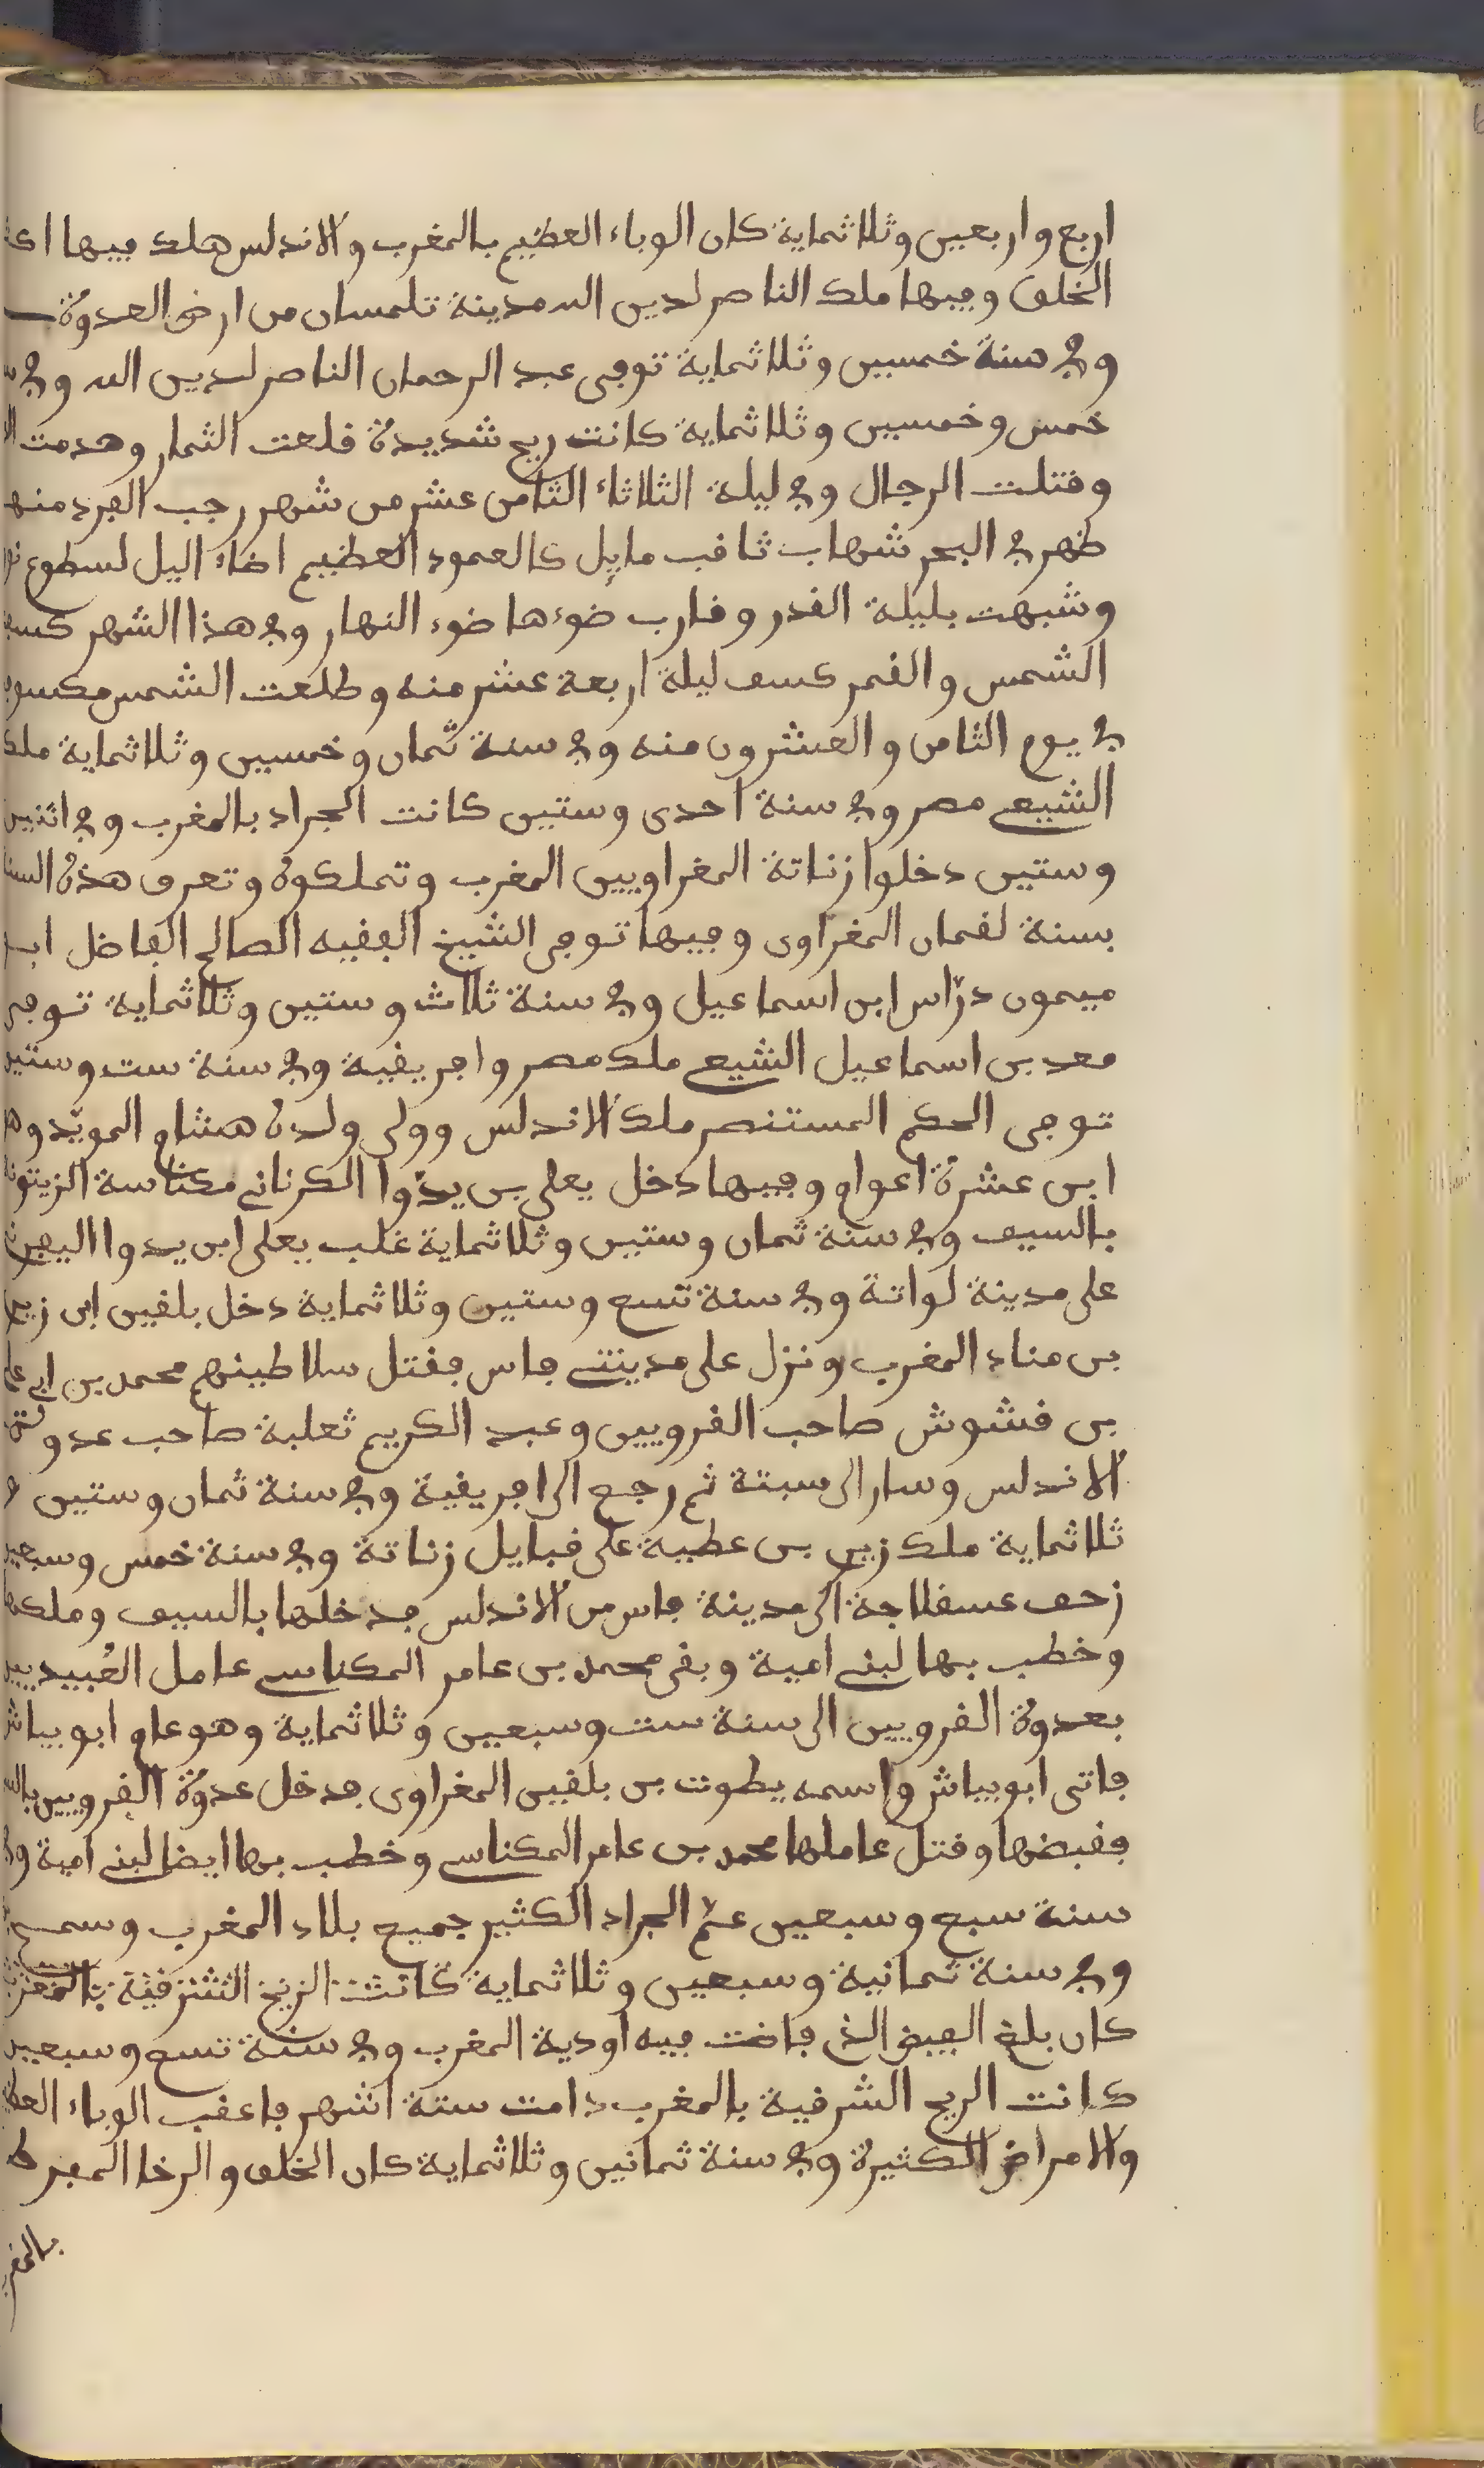 اربع واربعين وثلاثماية كان الوباء العظيم بالمغرب والاندلس هلك فيها
الخلق وفيها ملك الناصر لدين الله مدينة تلمسان من ارض العدوة
وفي سنة خمسين وثلاثماية توفى عبد الرحمان الناصر لدين الله وفي
خمس وخمسين وثلاثماية كانت ريح شديدة قلعت الثمار وهدمت
وقتلت الرجال وفي ليلة الثلاثاء الثامن عشر من شهر رجب الفرد منها
ظهر في البحر شهاب ثاقب مايل كالعمود العظيم اضاء اليل لسطوع
وشبهت بليلة القدر وقارب ضوءها ضوء النهار وفي هذا الشهر كسف
الشمس والقمر كسف ليلة اربعة عشر منه وطلعت الشمس مكسوفة
في يوم الثامن والعشرون منه وفي سنة ثمان وخمسين وثلاثماية ملك
الشيعي مصر وفي سنة احدى وستين كانت الجراد بالمغرب وفي اثنين
وستين دخلوا زناتة المغراويين المغرب وتملكوه وتعرف هذه السنة
بسنة لقمان المغراوى وفيها توفى الشيخ الفقيه الصالح الفاضل ابو
ميمون درّاس ابن اسماعيل وفي سنة ثلاث وستين وثلاثماية توفى
معد بن اسماعيل الشيعي ملك مصر وافريقية وفي سنة ست وستين
توفى الحكم المستنصر ملك الاندلس وولى ولده هشام المويّد وهو
ابن عشرة اعوام وفيها دخل يعلى بن يدّوا الكرناني مكناسة الزيتونة
بالسيف وفي سنة ثمان وستين وثلاثماية غلب يعلى ابن يدوا اليفرني
على مدينة لواتة وفي سنة تسع وستين وثلاثماية دخل بلقين ابن زيري
بن مناد المغرب ونزل على مدينتي فاس فقتل سلاطينهم محمد بن ابي علي
بن قشوش صاحب القرويين وعبد الكريم ثعلبة صاحب عدوة
الاندلس وسار الى سبتة ثم رجع الى افريقية وفي سنة ثمان وستين و
ثلاثماية ملك زيري بن عطية على قبايل زناتة وفي سنة خمس وسبعين
زحف عسقلاجة الى مدينة فاس من الاندلس فدخلها بالسيف وملكها
وخطب بها لبني امية وبقى محمد بن عامر المكناسي عامل العُبيديين
بعدوة القرويين الى سنة ست وسبعين وثلاثماية وهو عام ابو بياش
فاتى ابو بياش واسمه يطوت بن بلقين المغراوى فدخل عدوة القرويين
فقبضها وقتل عاملها محمد بن عامر المكناسي وخطب بها ايضا لبني امية وفي
سنة سبع وسبعين عمّ الجراد الكثير جميع بلاد المغرب وسمع
وفي سنة ثمانية وسبعين وثلاثماية كانت الريح الشرقية بالمغرب
كان بلغ الفيض الذي فاضت فيه اودية المغرب وفي سنة تسع وسبعين
كانت الريح الشرقية بالمغرب دامت ستة اشهر فاعقب الوباء العظيم
والامراض الكثيرة وفي سنة ثمانين وثلاثماية كان الخلف والرخا المفرط
بالمغرب